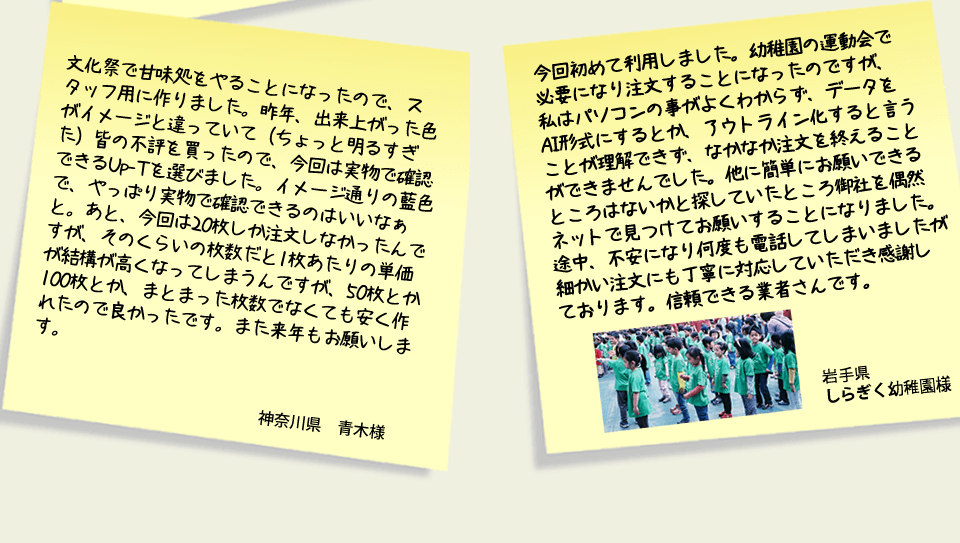 文化祭で甘味処をやることになったので、ス
タッフ用に作りました。昨年、出来上がった色
がイメージと違っていて（ちょっと明るすぎ
た）皆の不評を買ったので、今回は実物で確認
できるUp-Tを選びました。イメージ通りの藍色
で、やっぱり実物で確認できるのはいいなぁ
と。あと、今回は20枚しか注文しなかったんで
すが、そのくらいの枚数だと1枚あたりの単価
が結構が高くなってしまうんですが、50枚とか
100枚とか、まとまった枚数でなくても安く作
れたので良かったです。また来年もお願いしま
す。
神奈川県　青木様
今回初めて利用しました。幼稚園の運動会で
必要になり注文することになったのですが、
私はパソコンの事がよくわからず、データを
AI形式にするとか、アウトライン化すると言う
ことが理解できず、なかなか注文を終えること
ができませんでした。他に簡単にお願いできる
ところはないかと探していたところ御社を偶然
ネットで見つけてお願いすることになりました。
途中、不安になり何度も電話してしまいましたが
細かい注文にも丁寧に対応していただき感謝し
ております。信頼できる業者さんです。
岩手県
しらぎく幼稚園様